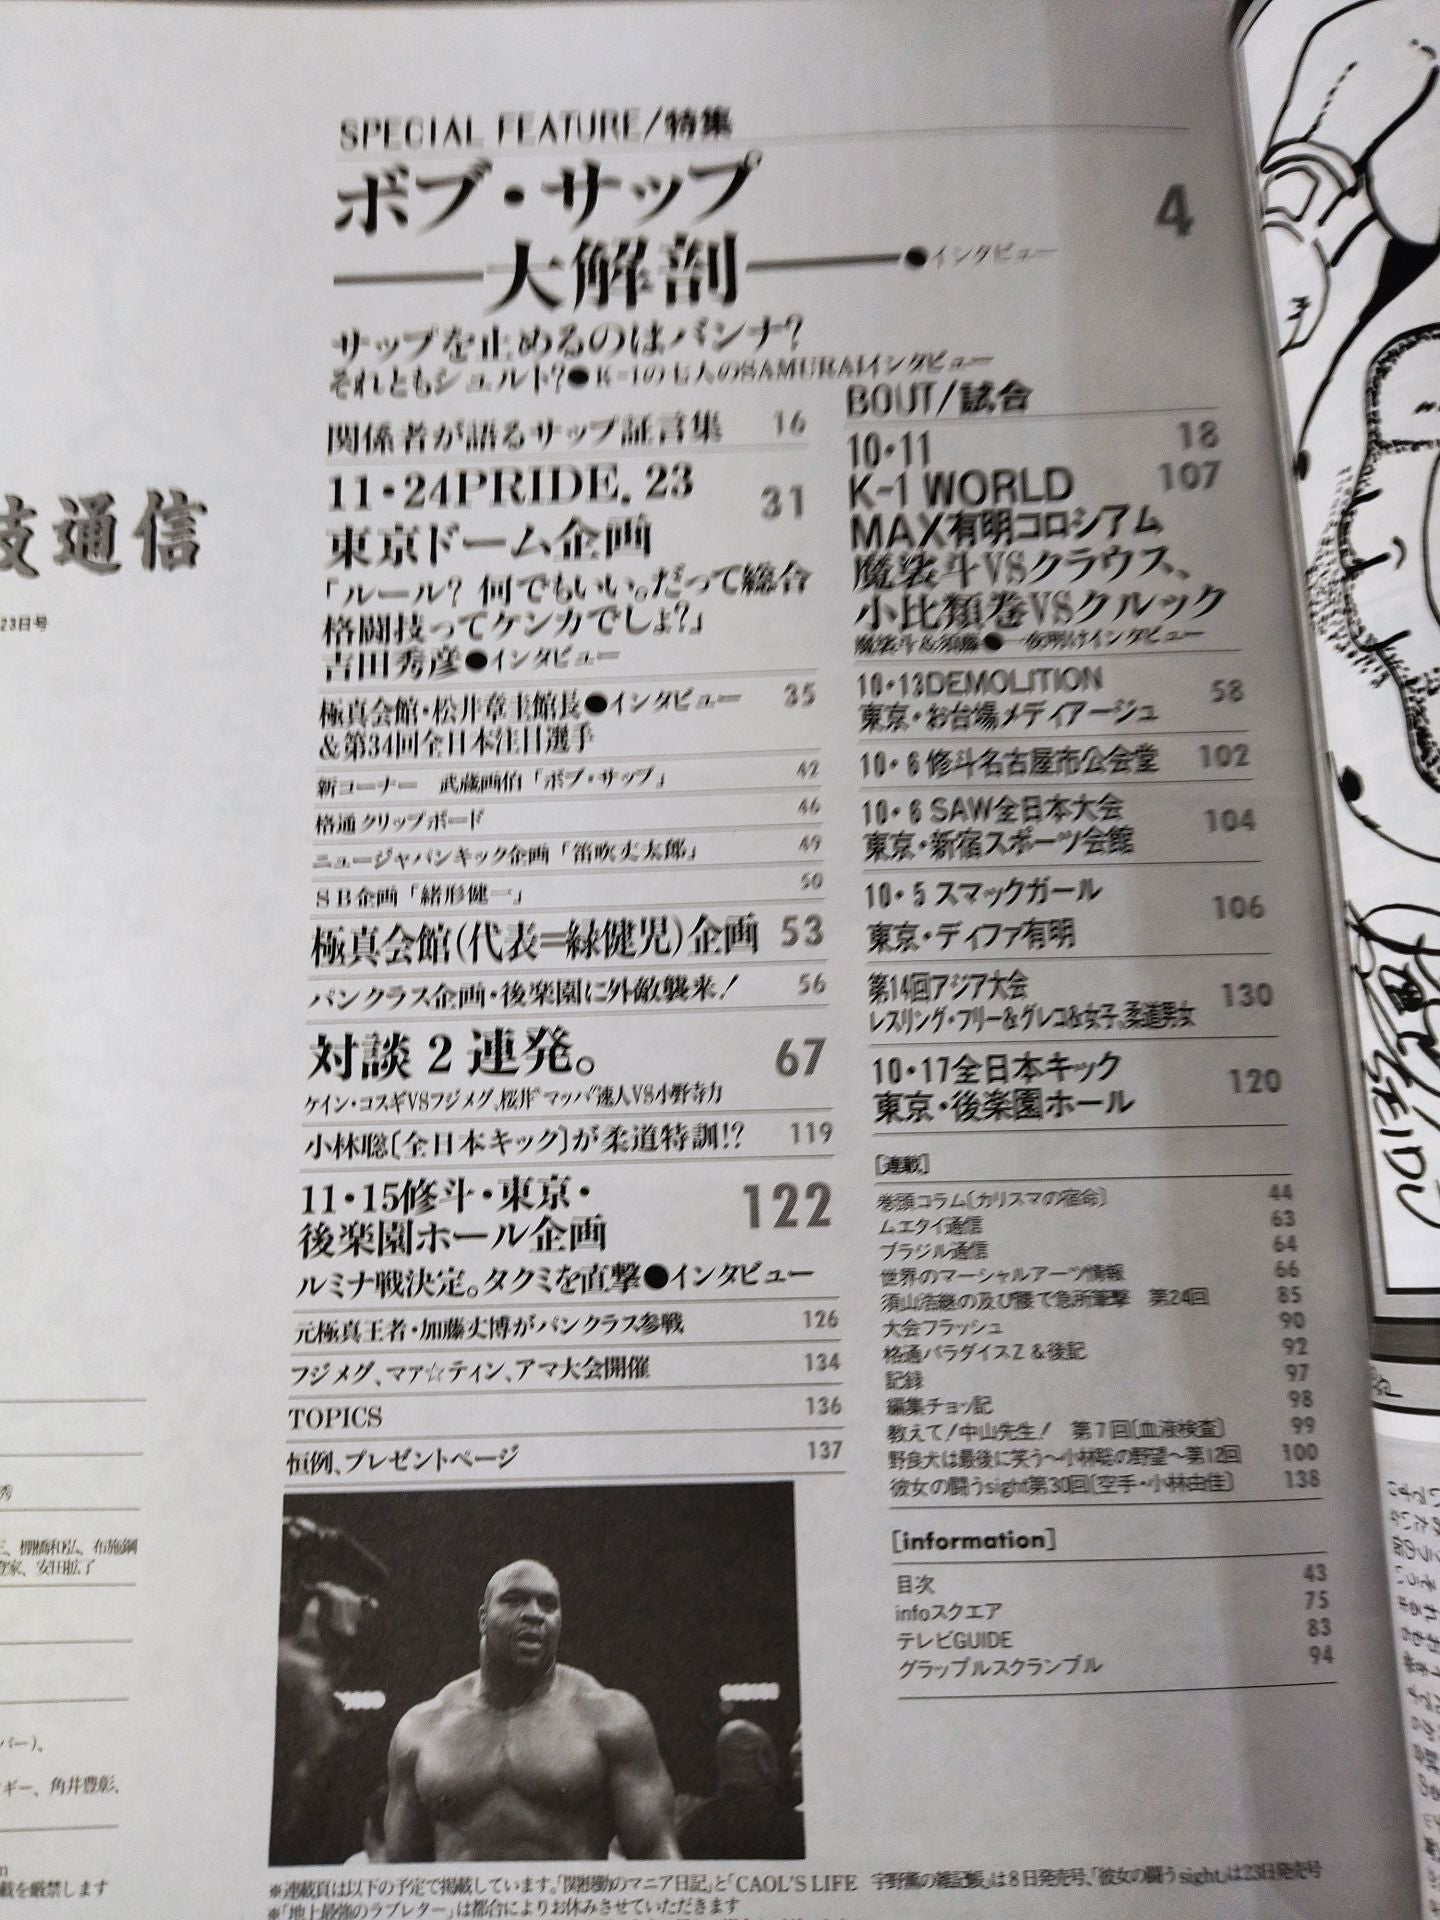 SPECIAL FEATURE/特集
ボブ・サップ 4
大解剖 ●インタビュー
サップを止めるのはバンナ?
それともシュルト?●K-1の七人のSAMURAIインタビュー
関係者が語るサップ証言集 16
11・24PRIDE. 23 31
東京ドーム企画
「ルール? 何でもいい。だって総合
格闘技ってケンカでしょ?」
吉田秀彦●インタビュー
極真会館・松井章圭館長●インタビュー 35
&第34回全日本注目選手
新コーナー 武蔵画伯「ボブ・サップ」 42
格通クリップボード 46
ニュージャパンキック企画「笛吹丈太郎」 49
SB企画「緒形健一」 50
極真会館(代表=緑健児)企画 53
パンクラス企画・後楽園に外敵襲来! 56
対談2連発。 67
ケイン・コスギVSフジメグ、桜井"マッハ"速人VS小野寺力
小林聡〔全日本キック〕が柔道特訓!? 119
11・15修斗・東京・ 122
後楽園ホール企画
ルミナ戦決定。タクミを直撃●インタビュー
元極真王者・加藤丈博がパンクラス参戦 126
フジメグ、マァ☆ティン、アマ大会開催 134
TOPICS 136
恒例、プレゼントページ 137
BOUT/試合
10・11 18
K-1 WORLD 107
MAX有明コロシアム
魔裟斗VSクラウス、
小比類巻VSクルック
魔裟斗&須藤●一夜明けインタビュー
10・13DEMOLITION 58
東京・お台場メディアージュ
10・6 修斗名古屋市公会堂 102
10・6 SAW全日本大会 104
東京・新宿スポーツ会館
10・5 スマックガール 106
東京・ディファ有明
第14回アジア大会 130
レスリング・フリー&グレコ&女子、柔道男女
10・17全日本キック 120
東京・後楽園ホール
[連載]
巻頭コラム〔カリスマの宿命〕 44
ムエタイ通信 63
ブラジル通信 64
世界のマーシャルアーツ情報 66
須山浩継の及び腰で急所筆撃 第24回 85
大会フラッシュ 90
格通パラダイスZ&後記 92
記録 97
編集チョッ記 98
教えて!中山先生! 第7回〔血液検査〕 99
野良犬は最後に笑う〜小林聡の野望〜第12回 100
彼女の闘うsight第30回〔空手・小林由佳〕 138
[information]
目次 43
infoスクエア 75
テレビGUIDE 83
グラップルスクランブル 94
※連載頁は以下の予定で掲載しています。「関根勤のマニア日記」と「CAOL'S LIFE 宇野薫の雑記帳」は8日発売号、「彼女の闘うsight」は23日発売号
※「地上最強のラブレター」は都合によりお休みさせていただきます
技通信
23日号
秀
三、棚橋和弘、布施鋼
登家、安田拡了
バー)、
ギー、角井豊彰、
載を厳禁します
SEIDO